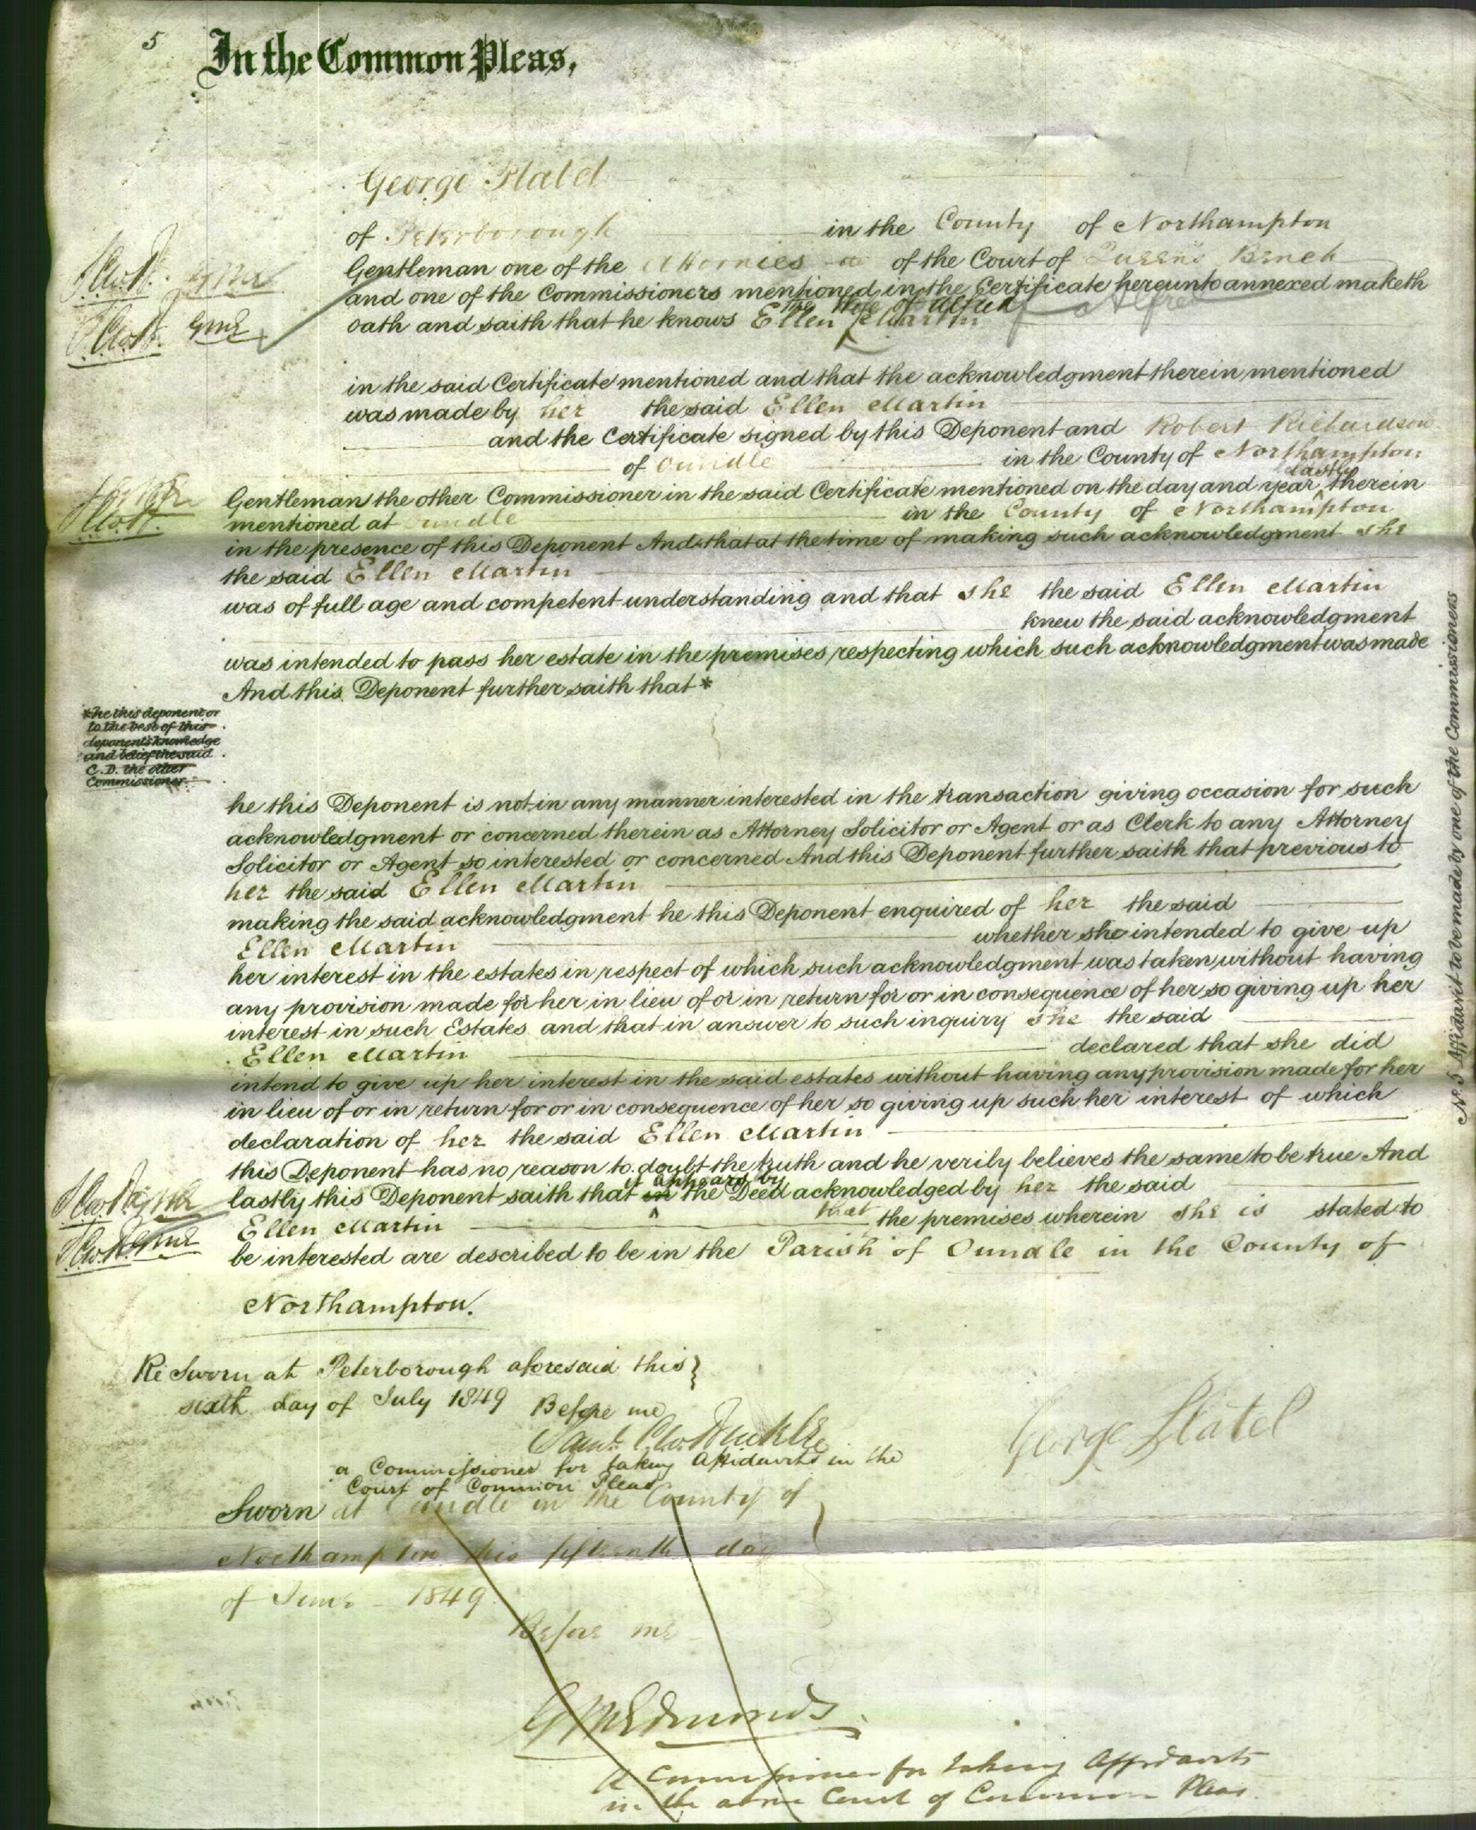 5
In the Common Pleas,
George
of Peterborough in the County of Northampton
Gentleman one of the Attornies of the Court of Queens Bench
and one of the Commissioners mentioned in the Certificate hereunto annexed maketh
the Wife of Alfred Alfred
oath and saith that he knows Ellen Martin
in the said Certificate mentioned and that the acknowledgment therein mentioned
was made by her the said Ellen Martin
and the Certificate signed by this Deponent and Robert Richardson
of Oundle in the County of Northampton
lastly
Gentleman the other Commissioner in the said Certificate mentioned on the day and year therein
mentioned at Oundle in the County of Northampton
in the presence of this Deponent And that at the time of making such acknowledgment she
the said Ellen Martin
was of full age and competent understanding and that she the said Ellen Martin
knew the said acknowledgment
was intended to pass her estate in the premises respecting which such acknowledgment was made
And this Deponent further saith that *
* he this deponent or
to the best of this
deponent's knowledge
and belief the said
C.D. the other
Commissioner
he this Deponent is not in any manner interested in the transaction giving occasion for such
acknowledgment or concerned therein as Attorney Solicitor or Agent or as Clerk to any Attorney
Solicitor or Agent so interested or concerned And this Deponent further saith that previous to
her the said Ellen Martin
making the said acknowledgment he this Deponent enquired of her the said
Ellen Martin whether she intended to give up
her interest in the estates in respect of which such acknowledgment was taken without having
any provision made for her in lieu of or in return for or in consequence of her so giving up her
interest in such Estates and that in answer to such inquiry she the said
Ellen Martin declared that she did
intend to give up her interest in the said estates without having any provision made for her
in lieu of or in return for or in consequence of her so giving up such her interest of which
declaration of her the said Ellen Martin
this Deponent has no reason to doubt the truth and he verily believes the same to be true And
it appears by
lastly this Deponent saith that in the Deed acknowledged by her the said
Ellen Martin that the premises wherein she is stated to
be interested are described to be in the Parish of Oundle in the County of
Northampton.
Re Sworn at Peterborough aforesaid this
sixth day of July 1849 Before me
a Commissioner for taking Affidavits in the
Court of Common Pleas
George
Sworn at Oundle in the County of
Northampton this fifteenth day
of June 1849
Before me
G M Edmonds
A Commissioner for taking Affidavits
in the above Court of Common Pleas.
No. 5 Affidavit to be made by one of the Commissioners